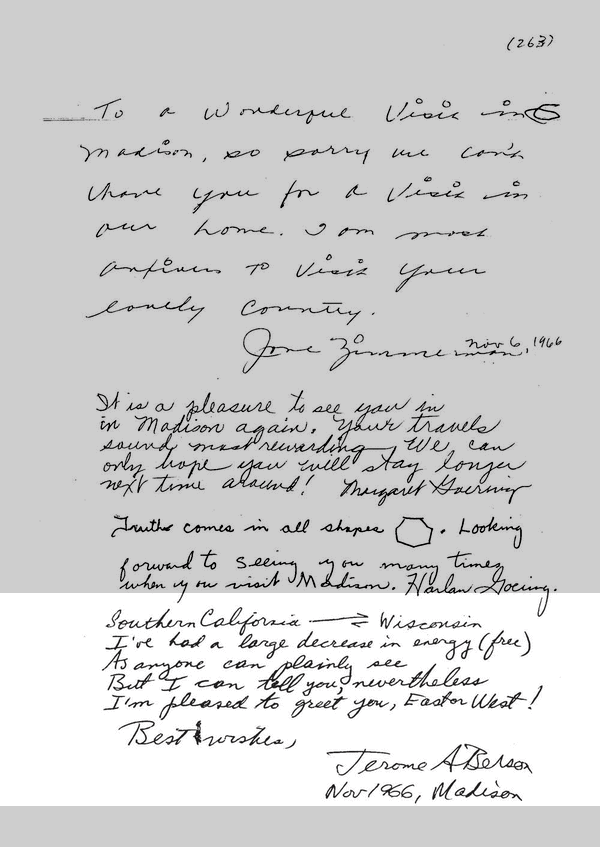 (263)
To a Wonderful Visit in
Madison, so sorry we can't
have you for a Visit in
our home. I am most
anxious to Visit your
lovely country.
Jane Zimmerman, Nov 6, 1966
It is a pleasure to see you in
in Madison again. Your travels
sound most rewarding. We can
only hope you will stay longer
next time around! Margaret Goering
Truth comes in all shapes . Looking
forward to seeing you many times
when you visit Madison. Harlan Goering.
Southern California ⇌ Wisconsin
I've had a large decrease in energy (free)
As anyone can plainly see
But I can tell you, nevertheless
I'm pleased to greet you, East or West!
Best wishes,
Jerome A Berson
Nov 1966, Madison